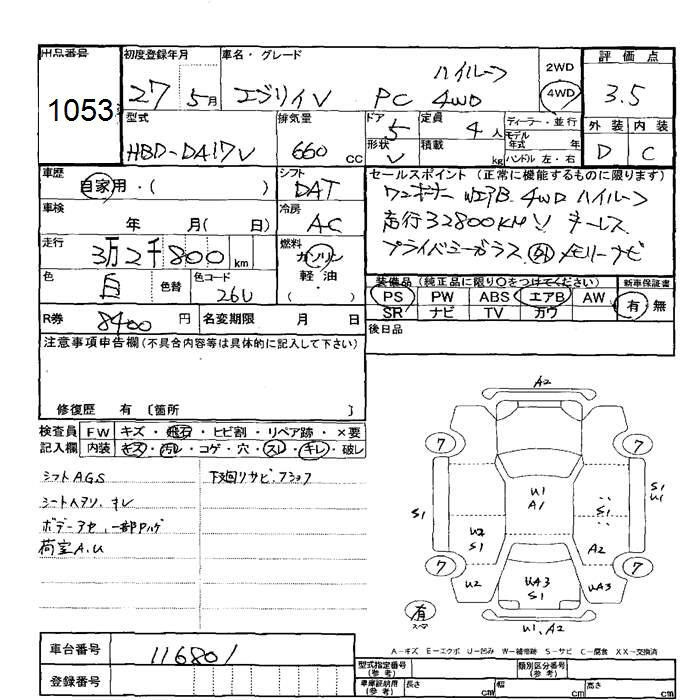 出品番号 1053
初度登録年月 27 5月
車名・グレード ハイルーフ
エブリイV PC 4WD
2WD 4WD
評価点 3.5
外装 内装
D C
型式 HBD-DA17V
排気量 660 cc
ドア 5
形状 V
定員 4人
積載 kg
ディーラー・並行
モデル年式 年
ハンドル 左・右
車歴 自家用・( )
シフト DAT
車検 年 月( 日)
冷房 A-C
走行 3万2千800km
燃料 ガソリン
軽・油
( )
色 白 色替
色コード 26U
R券 8400円
名変期限 月 日
セールスポイント(正常に機能するものに限ります)
ワンオーナー W.エアB. 4WD ハイルーフ
走行32800KM!! キーレス
プライバシーガラス 外 メモリーナビ
装備品(純正品に限り○をつけてください)
PS PW ABS エアB AW
SR ナビ TV カワ
新車保証書
有 無
後日品
注意事項申告欄(不具合内容等は具体的に記入して下さい)
修復歴 有 〔箇所 〕
検査員記入欄
FW キズ・飛石・ヒビ割・リペア跡・×要
内装 キズ・汚レ・コゲ・穴・スレ・キレ・破レ
シフトAGS
下廻リサビ.
シートヘタリ.キレ
ボデー
一部Pハゲ
荷室A.U
A2
7 7
S1
U1
A1
S1
S1
U1
U2
S1
A2
7 7
U2
UA3
S1
UA3
有
U1.A2
A-キズ E-エクボ U-凹み W-補修跡 S-サビ C-腐食 XX-交換済
車台番号 116801
登録番号
型式指定番号(参考)
類別区分番号(参考)
車庫証明用(参考) 長さ cm 幅 cm 高さ cm